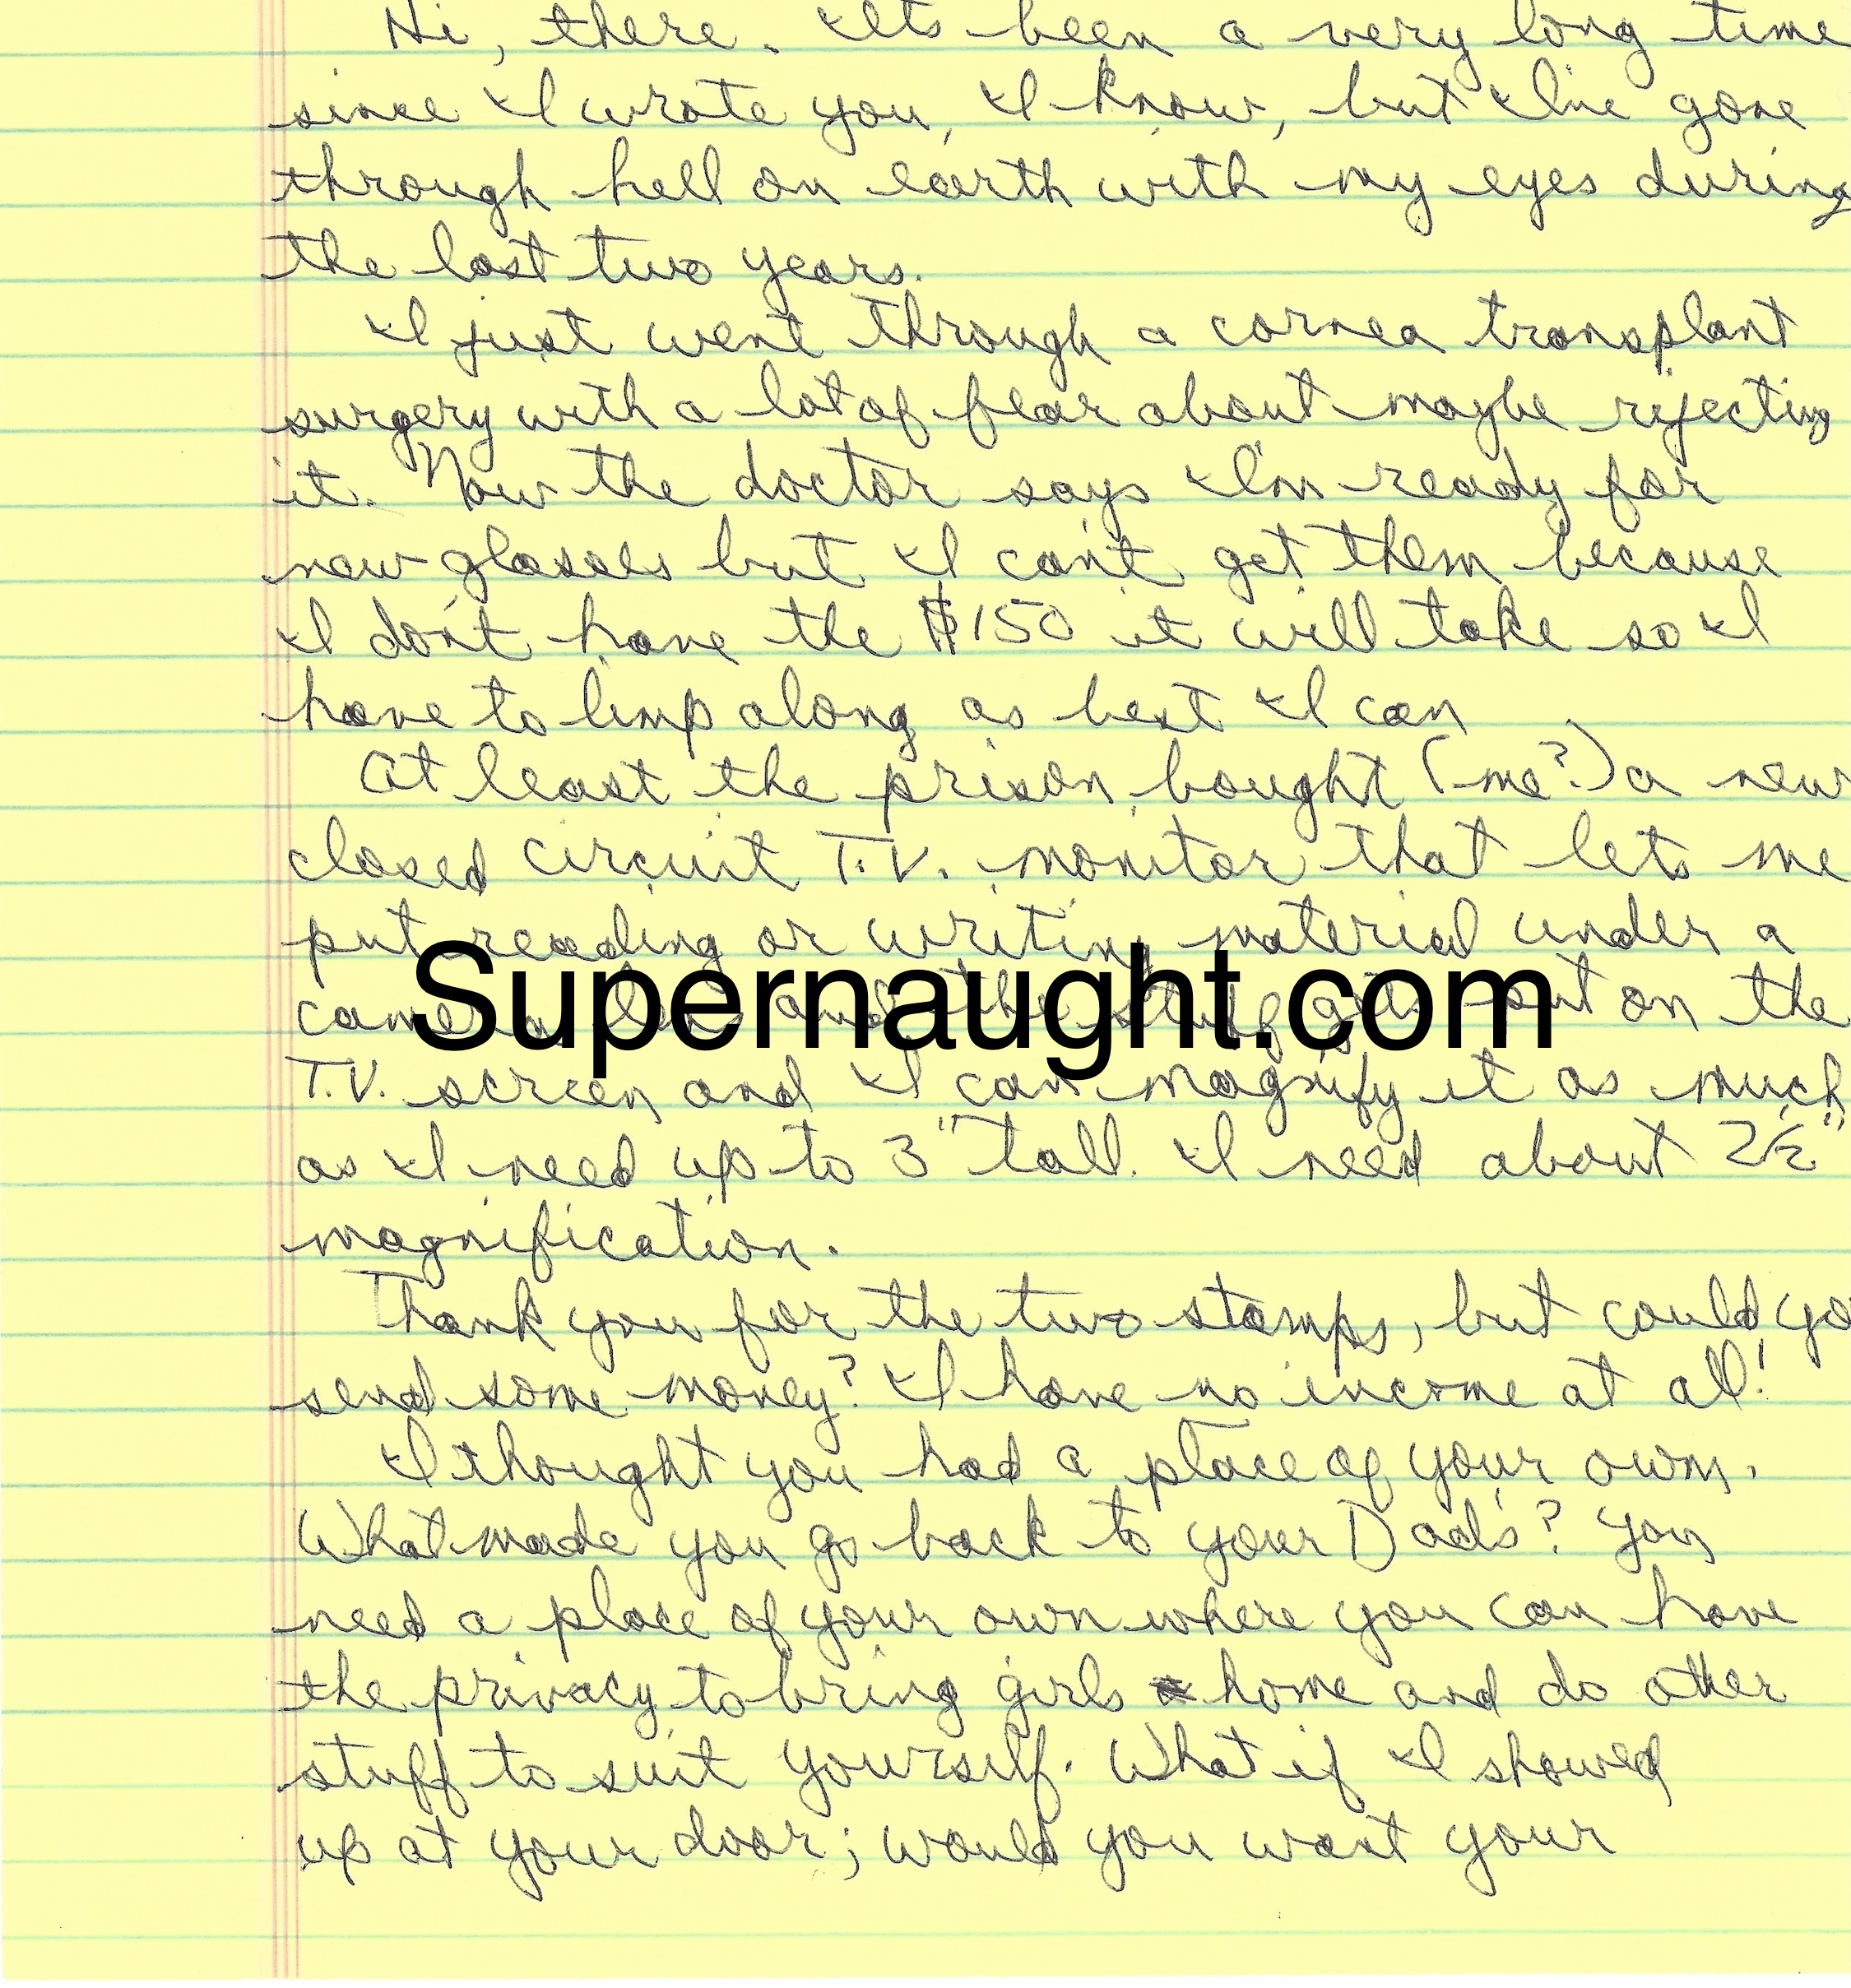 Hi, there. Its been a very long time
since I wrote you, I know, but I've gone
through hell on earth with my eyes during
the last two years.
I just went through a cornea transplant
surgery with a lot of fear about maybe rejecting
it. Now the doctor says I'm ready for
new glasses but I can't get them because
I don't have the $150 it will take so I
have to limp along as best I can
At least the prison bought (me?) a new
closed circuit T.V. monitor that lets me
put reading or writing material under a
Supernaught.com
camera lens and the stuff gets put on the
T.V. screen and I can magnify it as much
as I need up to 3" tall. I need about 2½"
magnification.
Thank you for the two stamps, but could yo
send some money? I have no income at all!
I thought you had a place of your own.
What made you go back to your Dad's? You
need a place of your own where you can have
the privacy to bring girls home and do other
stuff to suit yourself. What if I showed
up at your door; would you want your